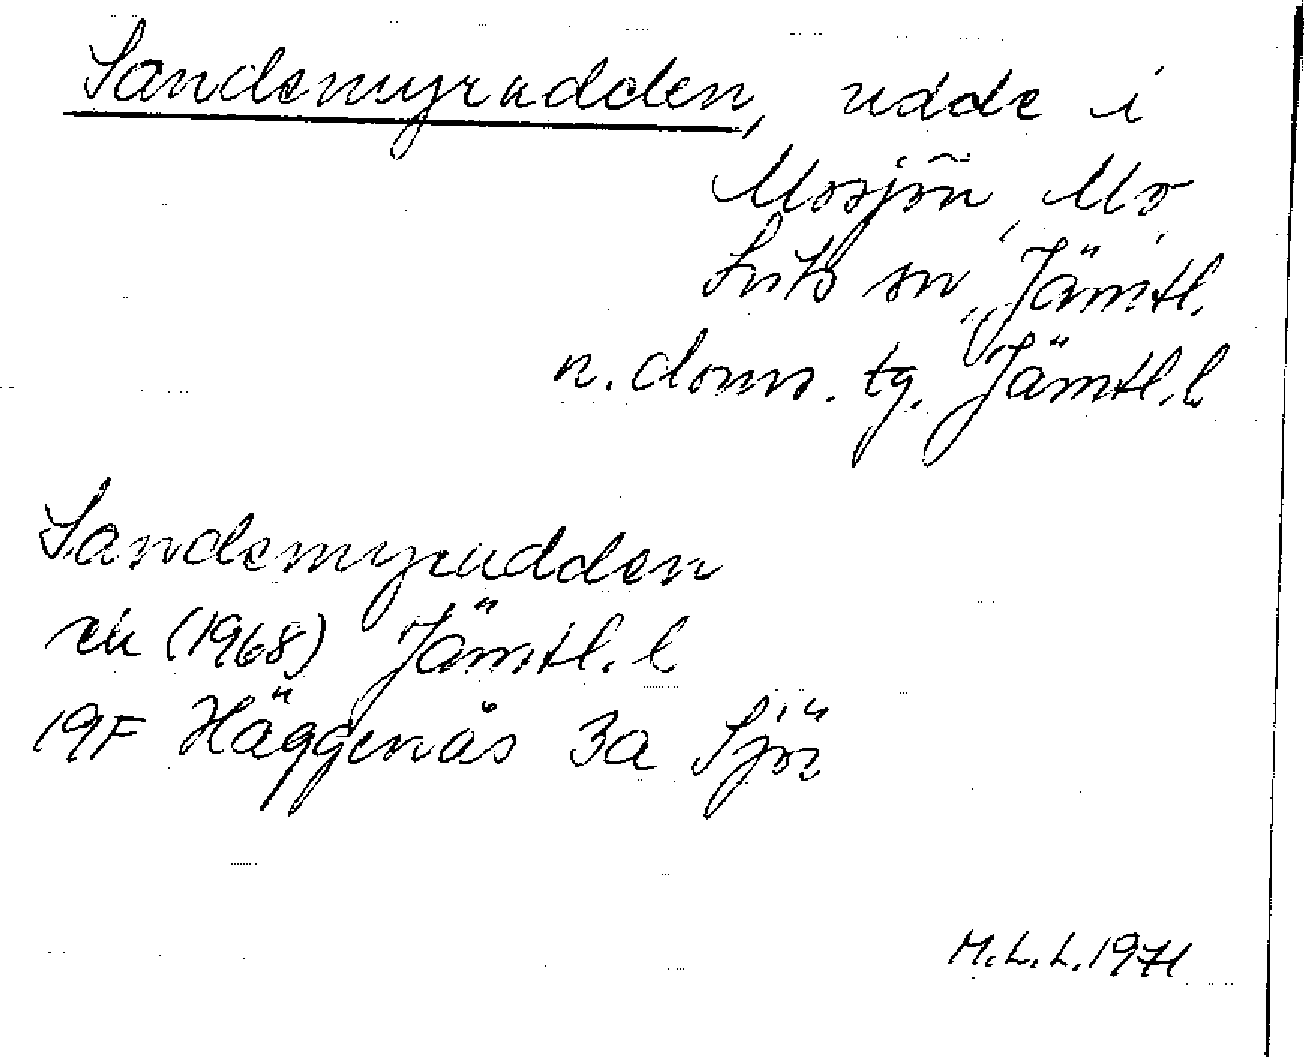 Sandemyrudden, udde i
Mosjön, Mo,
Lits sn, Jämtl.
n. doms. tg. Jämtl. l
Sandemyrudden
ek (1968) Jämtl. l
19F Häggenås 3a Sjö
M.L.L. 1971